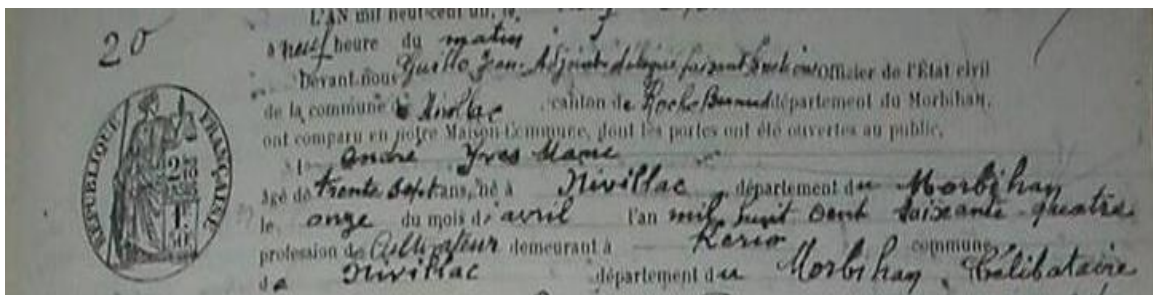 20
L'AN mil neuf-cent un, le
à neuf heure du matin
Devant nous Guillo Jean Adjoint délégué faisant fonction Officier de l'État civil
de la commune de Nivillac canton de Roche Bernard département du Morbihan,
ont comparu en notre Maison Commune, dont les portes ont été ouvertes au public,
1° André Yves Marie
âgé de trente sept ans, né à Nivillac département du Morbihan
le onze du mois d'avril l'an mil huit cent soixante quatre
profession de Cultivateur demeurant à commune
de Nivillac département du Morbihan, Célibataire
RÉPUBLIQUE FRANÇAISE